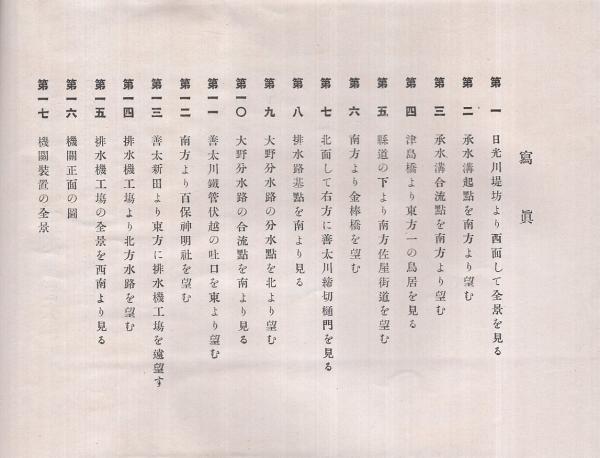 寫眞
第一 日光川堤塘より西面して全景を見る
第二 承水溝起點を南方より望む
第三 承水溝合流點を南方より望む
第四 津島橋より東方一の鳥居を見る
第五 縣道の下より南方佐屋街道を望む
第六 南方より金棒橋を望む
第七 北面して右方に善太川締切樋門を見る
第八 排水路基點を南より見る
第九 大野分水路の分水點を北より望む
第一〇 大野分水路の合流點を南より見る
第一一 善太川鐵管伏越の吐口を東より望む
第一二 南方より百保神明社を望む
第一三 善太新田より東方に排水機工場を遠望す
第一四 排水機工場より北方水路を望む
第一五 排水機工場の全景を西南より見る
第一六 機關正面の圖
第一七 機關裝置の全景